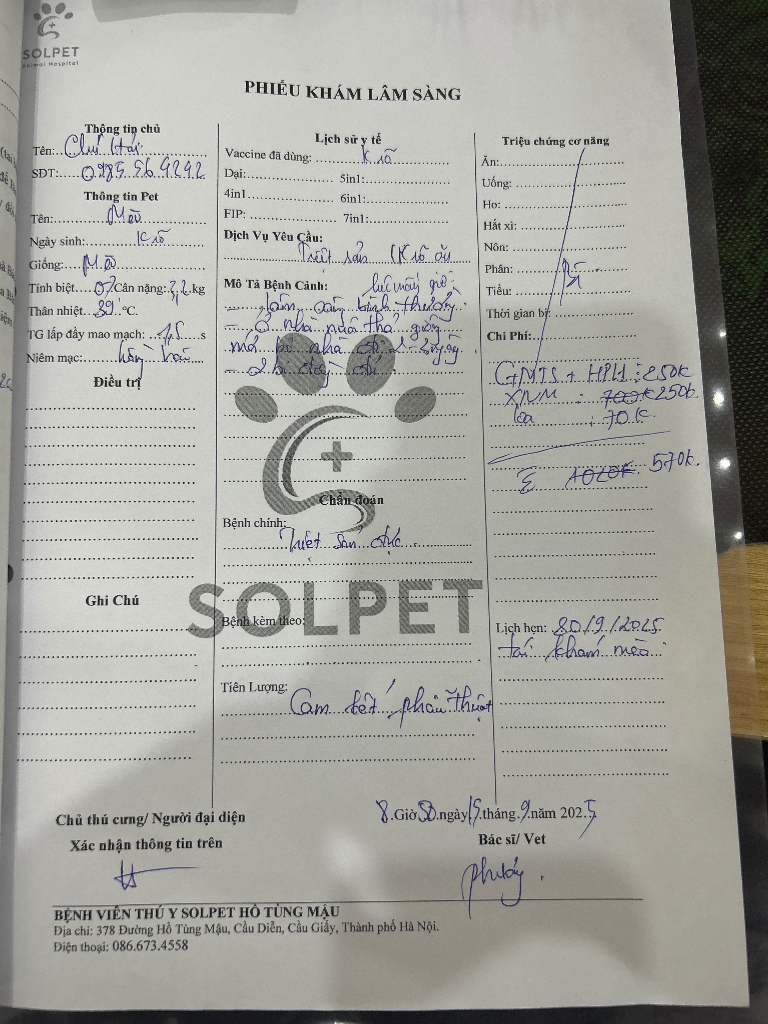 SOLPET
Animal Hospital
PHIẾU KHÁM LÂM SÀNG
Thông tin chủ
Tên: Chú Hải
SĐT: 0985.56.9292
Thông tin Pet
Tên: Mèo
Ngày sinh: K rõ
Giống: Mèo
Tính biệt Cân nặng: 3,2 kg
Thân nhiệt 39 °C.
TG lấp đầy mao mạch: 1,5 s
Niêm mạc: hồng hào
Điều trị
Ghi Chú
Lịch sử y tế
Vaccine đã dùng: K rõ
Dại: 5in1:
4in1 6in1:
FIP: 7in1:
Dịch Vụ Yêu Cầu:
Triệt sản (K rõ
Mô Tả Bệnh Cảnh: lúc mấy giờ
- bình thường
- ở nhà thả giống
nhà 2-3 ngày
- 2 bi
Chẩn đoán
Bệnh chính:
Triệt sản đực
Bệnh kèm theo:
Tiên Lượng:
Cam kết phẫu thuật
Triệu chứng cơ năng
Ăn:
Uống:
Ho:
Hắt xì:
Nôn:
Phân:
Tiểu:
Thời gian bị:
Chi Phí:
GMTS + HPH : 250k
XNM : 700k 250k
loa : 70k
Σ 1020k 570k.
Lịch hẹn: 20/9/2025
tái khám mèo
Chủ thú cưng/ Người đại diện
Xác nhận thông tin trên
8.Giờ 50.ngày 15.tháng.9.năm 2025
Bác sĩ/ Vet
BỆNH VIỆN THÚ Y SOLPET HỒ TÙNG MẬU
Địa chỉ: 378 Đường Hồ Tùng Mậu, Cầu Diễn, Cầu Giấy, Thành phố Hà Nội.
Điện thoại: 086.673.4558
SOLPET